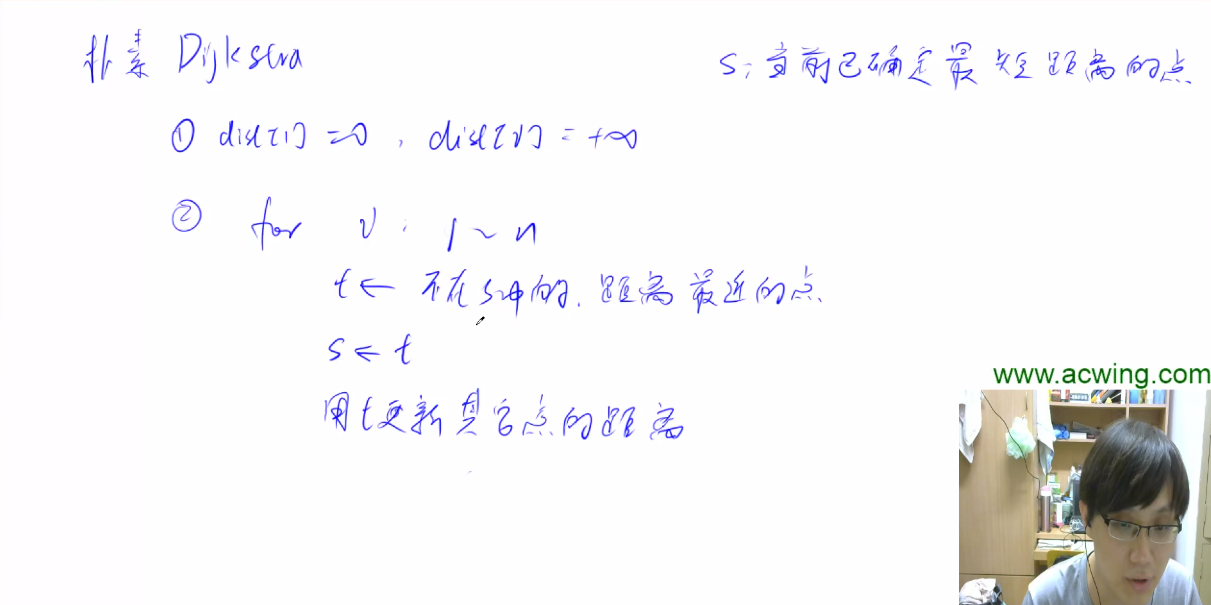 朴素 Dijkstra
s: 当前已确定最短距离的点
① dist[1] = 0, dist[v] = +∞
② for v: 1 ~ n
t ← 不在s中的, 距离最近的点
s ← t
用t更新其它点的距离
www.acwing.com